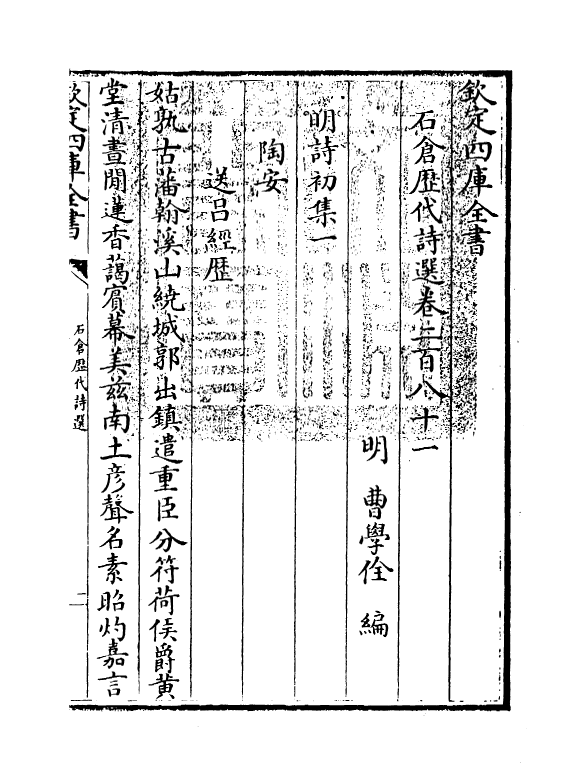 欽定四庫全書
石倉歷代詩選卷二百八十一
明 曹學佺 編
明詩初集一
陶安
送呂經歷
姑孰古藩翰溪山繞城郭出鎮遣重臣分符荷侯爵黄
堂清晝閒蓮香藹賓幕美兹南土彦聲名素昭灼嘉言
欽定四庫全書
石倉歷代詩選
二